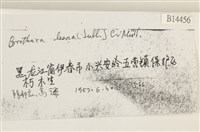 B14456
Brothera leana (Sull.) C. Müll.
黑龙江省伊春市小兴安岭五营镇保护区
朽木生